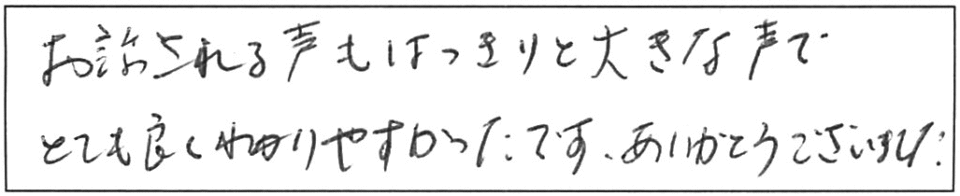 お話される声もはっきりと大きな声で
とても良くわかりやすかったです。ありがとうございました。